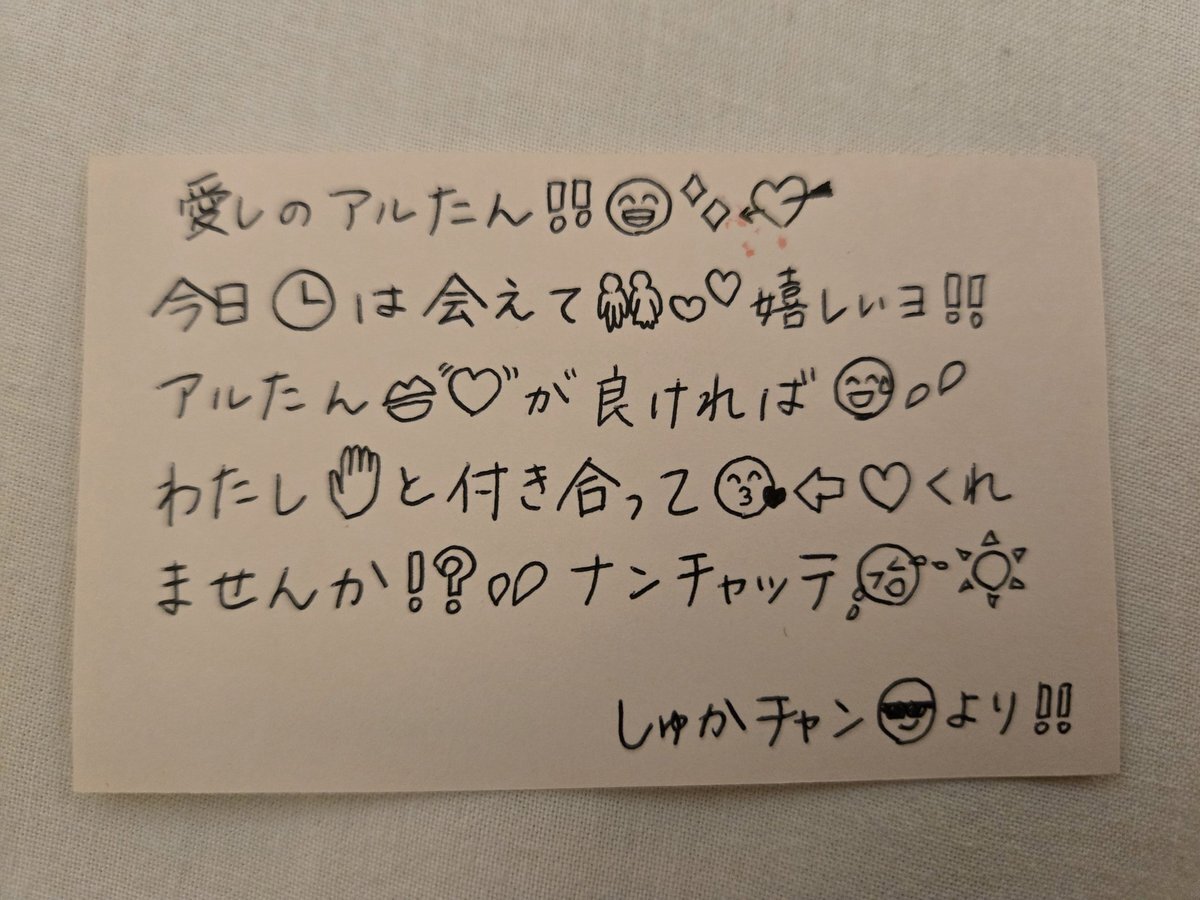 愛しのアルたん‼😁✨💘
今日🕒は会えて👭💕嬉しいヨ‼
アルたん👄💓が良ければ😅💦
わたし✋と付き合って😘⇦♡くれ
ませんか⁉💦ナンチャッテ🤣☀
しゅかチャン😎より‼